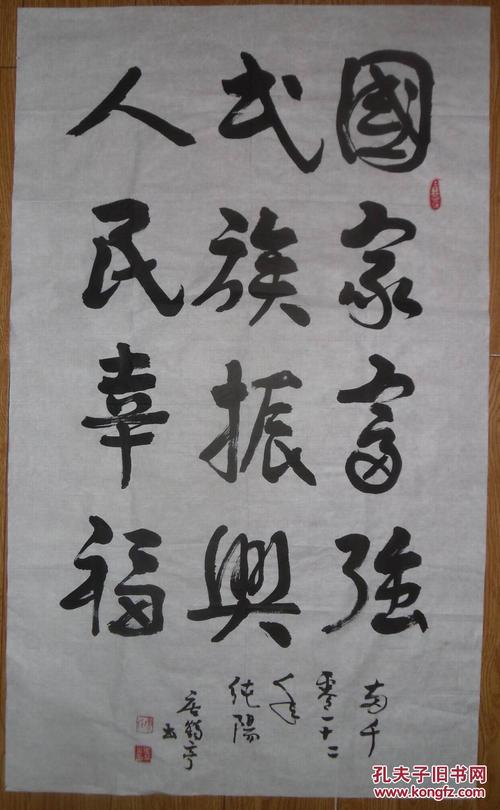 國家富強
民族振興
人民幸福
两千
零一十二
年
纯陽
孔夫子旧书网
www.kongfz.com